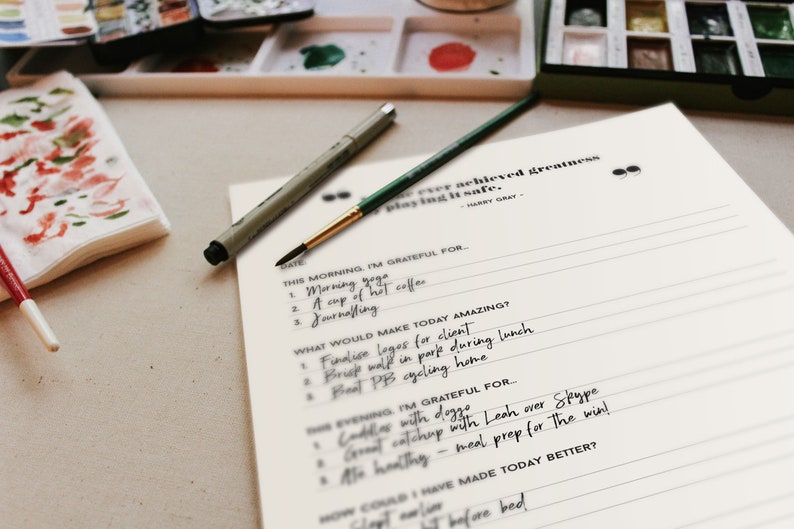 ever achieved greatness
playing it safe.
- HARRY GRAY -
DATE:
THIS MORNING, I'M GRATEFUL FOR...
1. Morning yoga
2. A cup of hot coffee
3. Journalling
WHAT WOULD MAKE TODAY AMAZING?
1. Finalise logos for client
2. Brisk walk in park during lunch
3. Beat PB cycling home
THIS EVENING, I'M GRATEFUL FOR...
1. Cuddles with doggo
2. Great catchup with Leah over Skype
3. Ate healthy – meal prep for the win!
HOW COULD I HAVE MADE TODAY BETTER?
Slept earlier
before bed